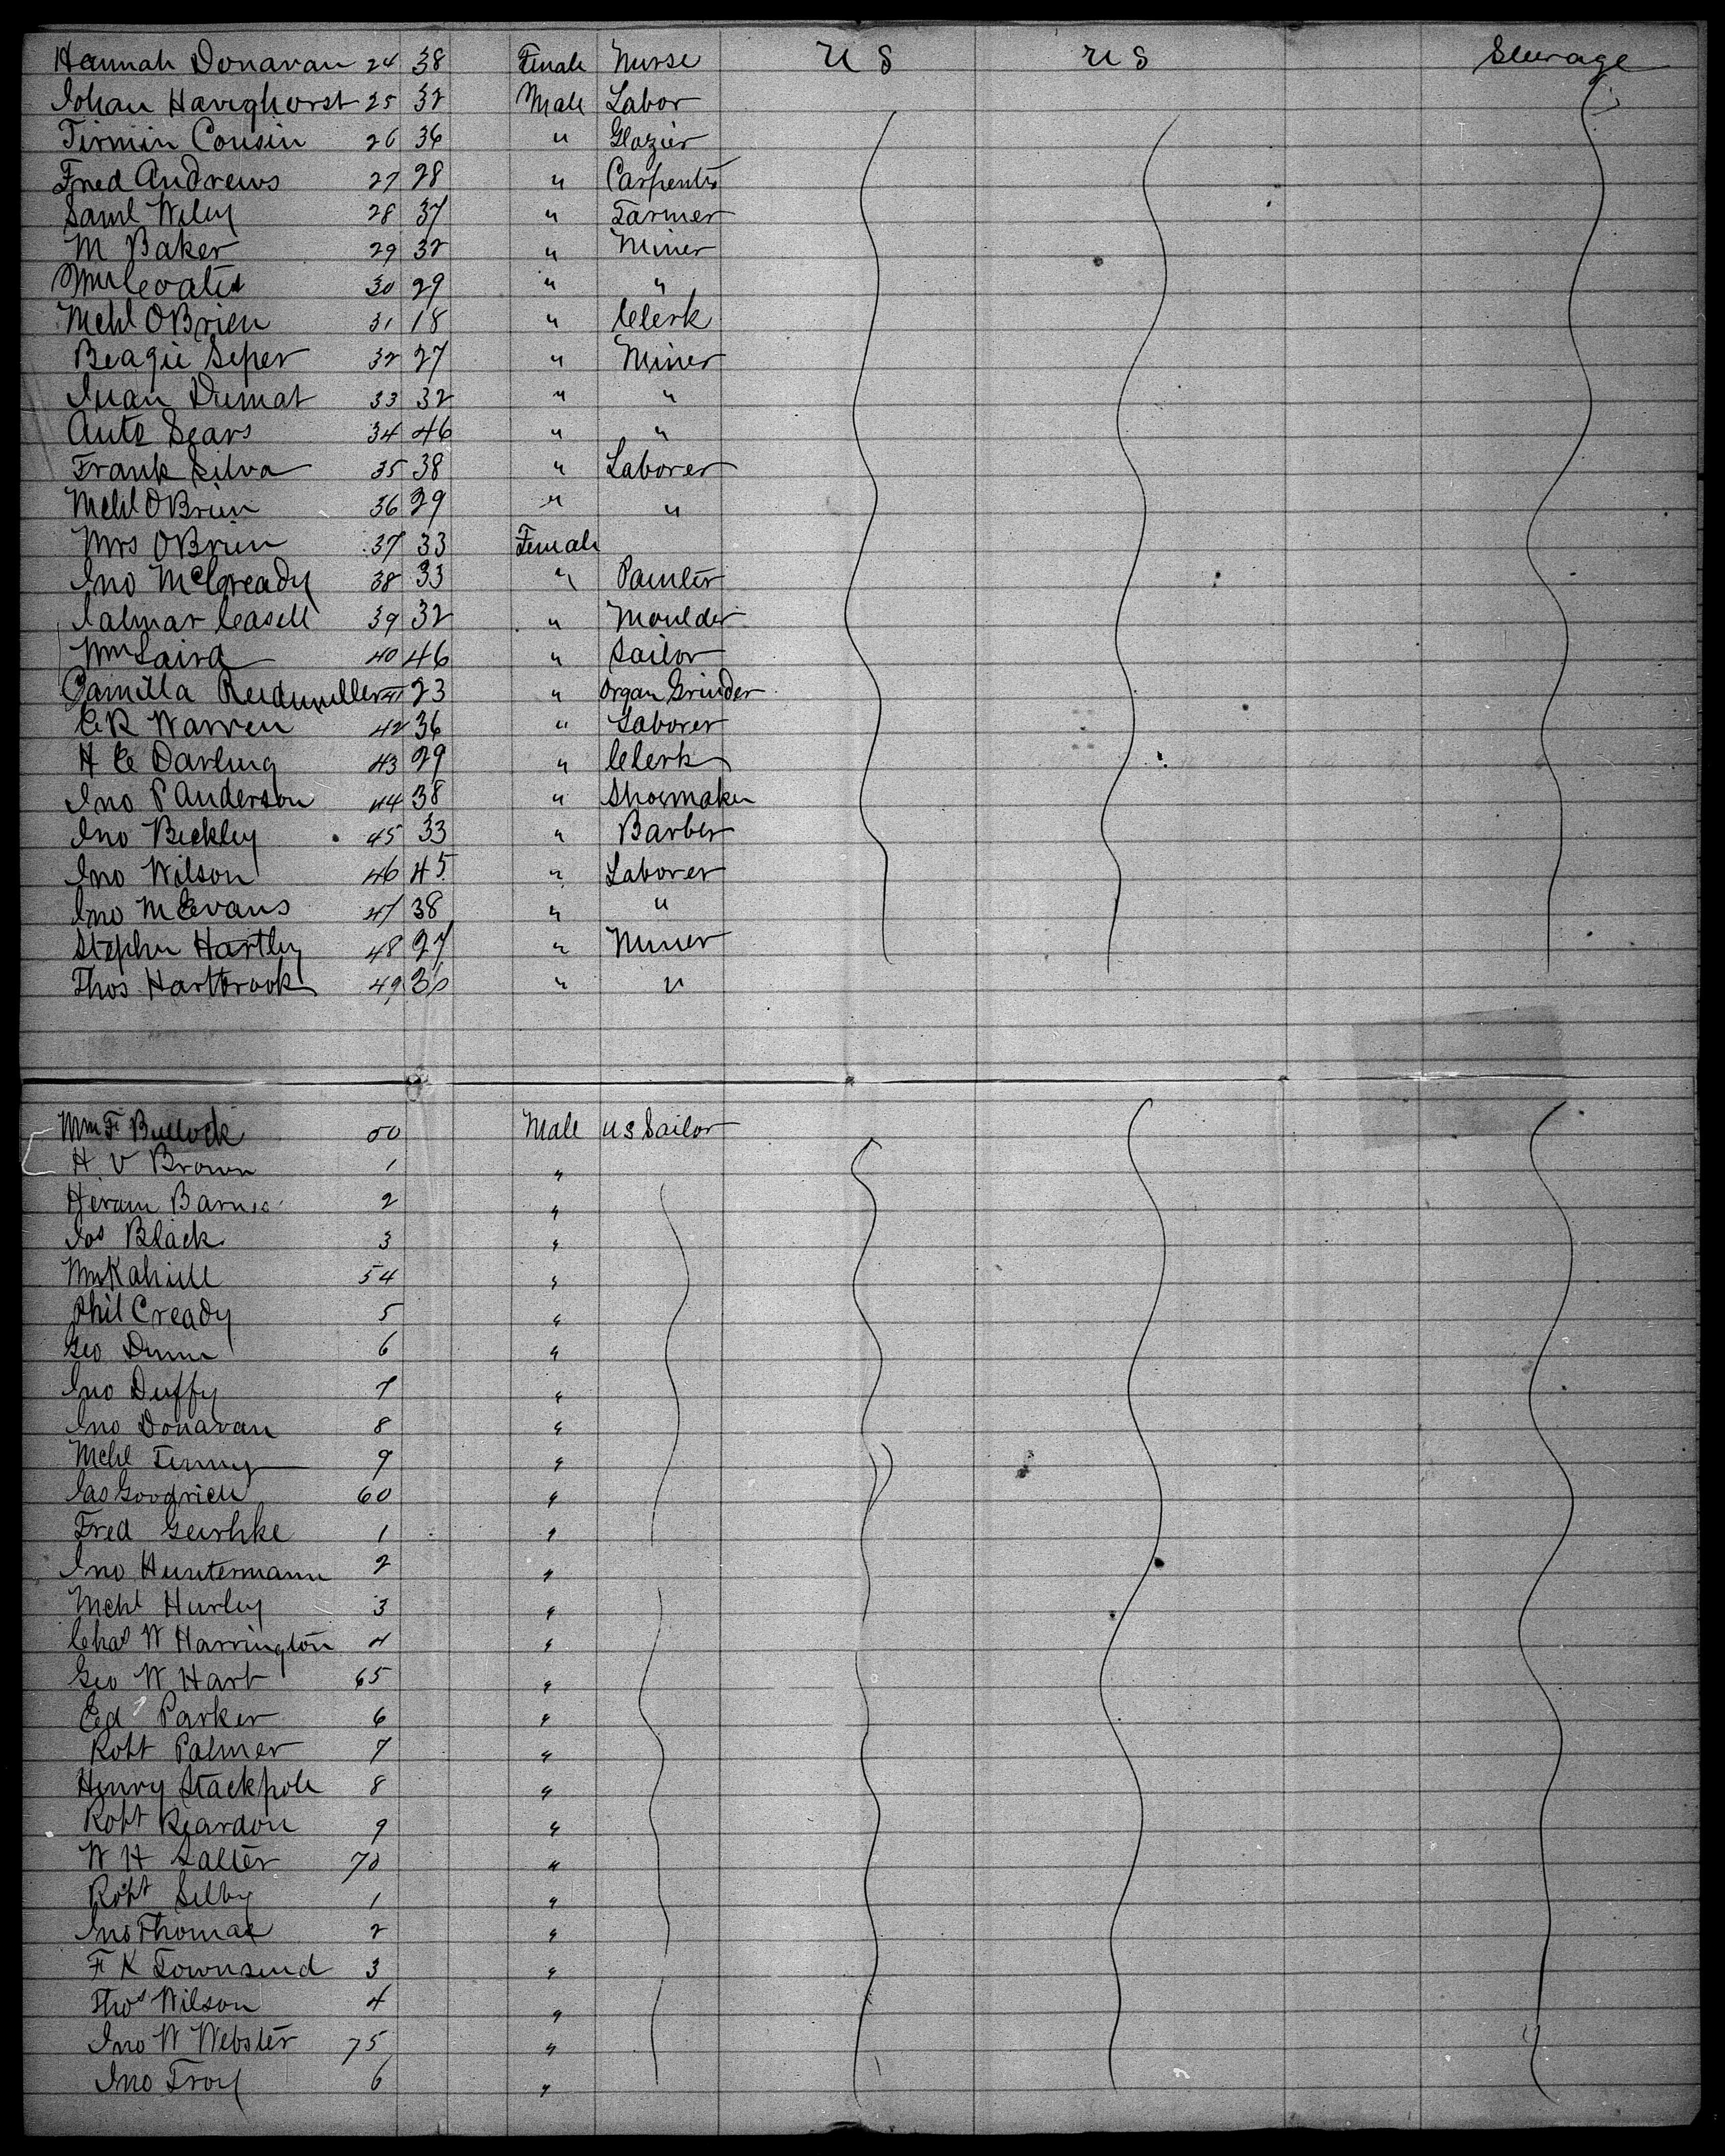 Hannah Donavan 24 38 Female Nurse U S U S Steerage
Johan Havighorst 25 32 Male Labor
Firmin Cousin 26 36 " Glazier
Fred Andrews 27 28 " Carpenter
Saml Wiley 28 37 " Farmer
M Baker 29 32 " Miner
Wm 30 29 " "
Mchl OBrien 31 18 " Clerk
Beagie Seper 32 27 " Miner
Juan Dumat 33 32 " "
Auto Sears 34 46 " "
Frank Silva 35 38 " Laborer
Mchl OBrien 36 29 " "
Mrs OBrien 37 33 Female
Jno McCready 38 33 " Painter
Jalmar Casell 39 32 " Moulder
Wm Laird 40 46 " Sailor
Camilla 41 23 " Organ Grinder
C R Warren 42 36 " Laborer
H C Darling 43 29 " Clerk
Jno P Anderson 44 38 " Shoemaker
Jno Beckley 45 33 " Barber
Jno Wilson 46 45 " Laborer
Jno M Evans 47 38 " "
Stephen Hartley 48 27 " Miner
Thos Hartbrook 49 30 " "
Wm F Bullock 50 Male U S Sailor
H V Brown 1 "
Hiram Barnes 2 "
Jos Black 3 "
Wm Kahill 54 "
Phil Cready 5 "
Geo Dunn 6 "
Jno Duffy 7 "
Jno Donavan 8 "
Mchl Finny 9 "
Jas Goodrich 60 "
Fred Gershke 1 "
Jno Huntermann 2 "
Mchl Hurley 3 "
Chas W Harrington 4 "
Geo W Hart 65 "
Ed Parker 6 "
Robt Palmer 7 "
Henry Stackpole 8 "
Robt Reardon 9 "
W H Salter 70 "
Robt Selby 1 "
Jno Thomas 2 "
F K Townsend 3 "
Thos Wilson 4 "
Jno W Webster 75 "
Jno Troy 6 "